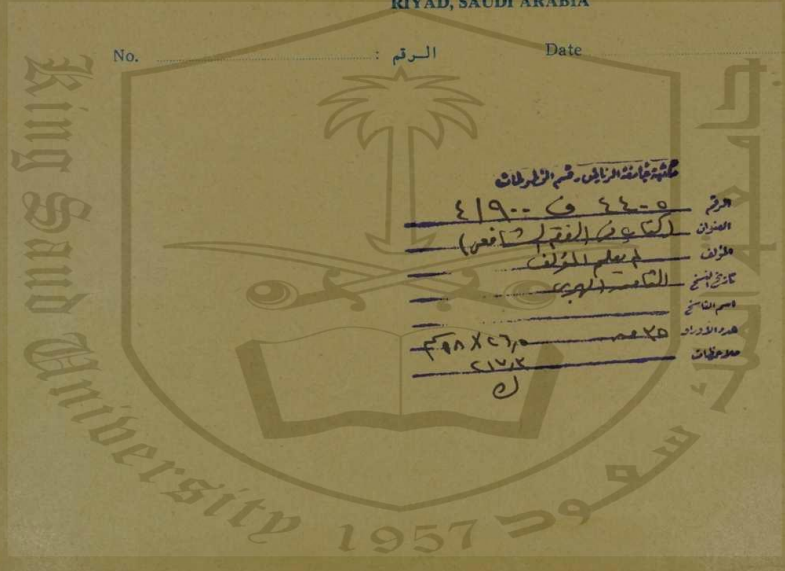 RIYAD, SAUDI ARABIA
No. الرقم : Date
مكتبة جامعة الرياض - قسم المخطوطات
الرقم ٤٤٠٥ ف ٤١٩٠٠
العنوان (كتاب في الفقه الشافعي)
المؤلف لم يعلم المؤلف
تاريخ النسخ الثامن الهجري
اسم الناسخ
عدد الأوراق ٣٥ ٢٦٫٥ X ١٨ سم
ملاحظات ٢١٧٫٣
ك
King Saud University 1957 جامعة الملك سعود